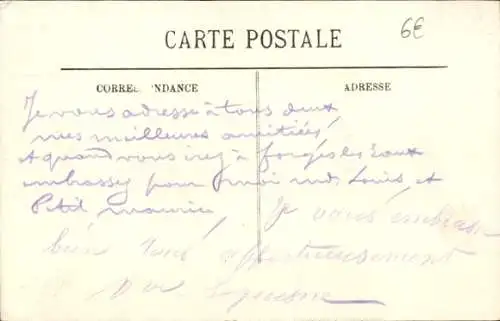 6€
CARTE POSTALE
CORRES NDANCE
ADRESSE
Je vous adresse à tous deux
mes meilleures amitiés
et quand vous irez à forges les eaux
embrassez pour moi Louis, et
Petit maurice, Je vous embrasse
bien affectueusement